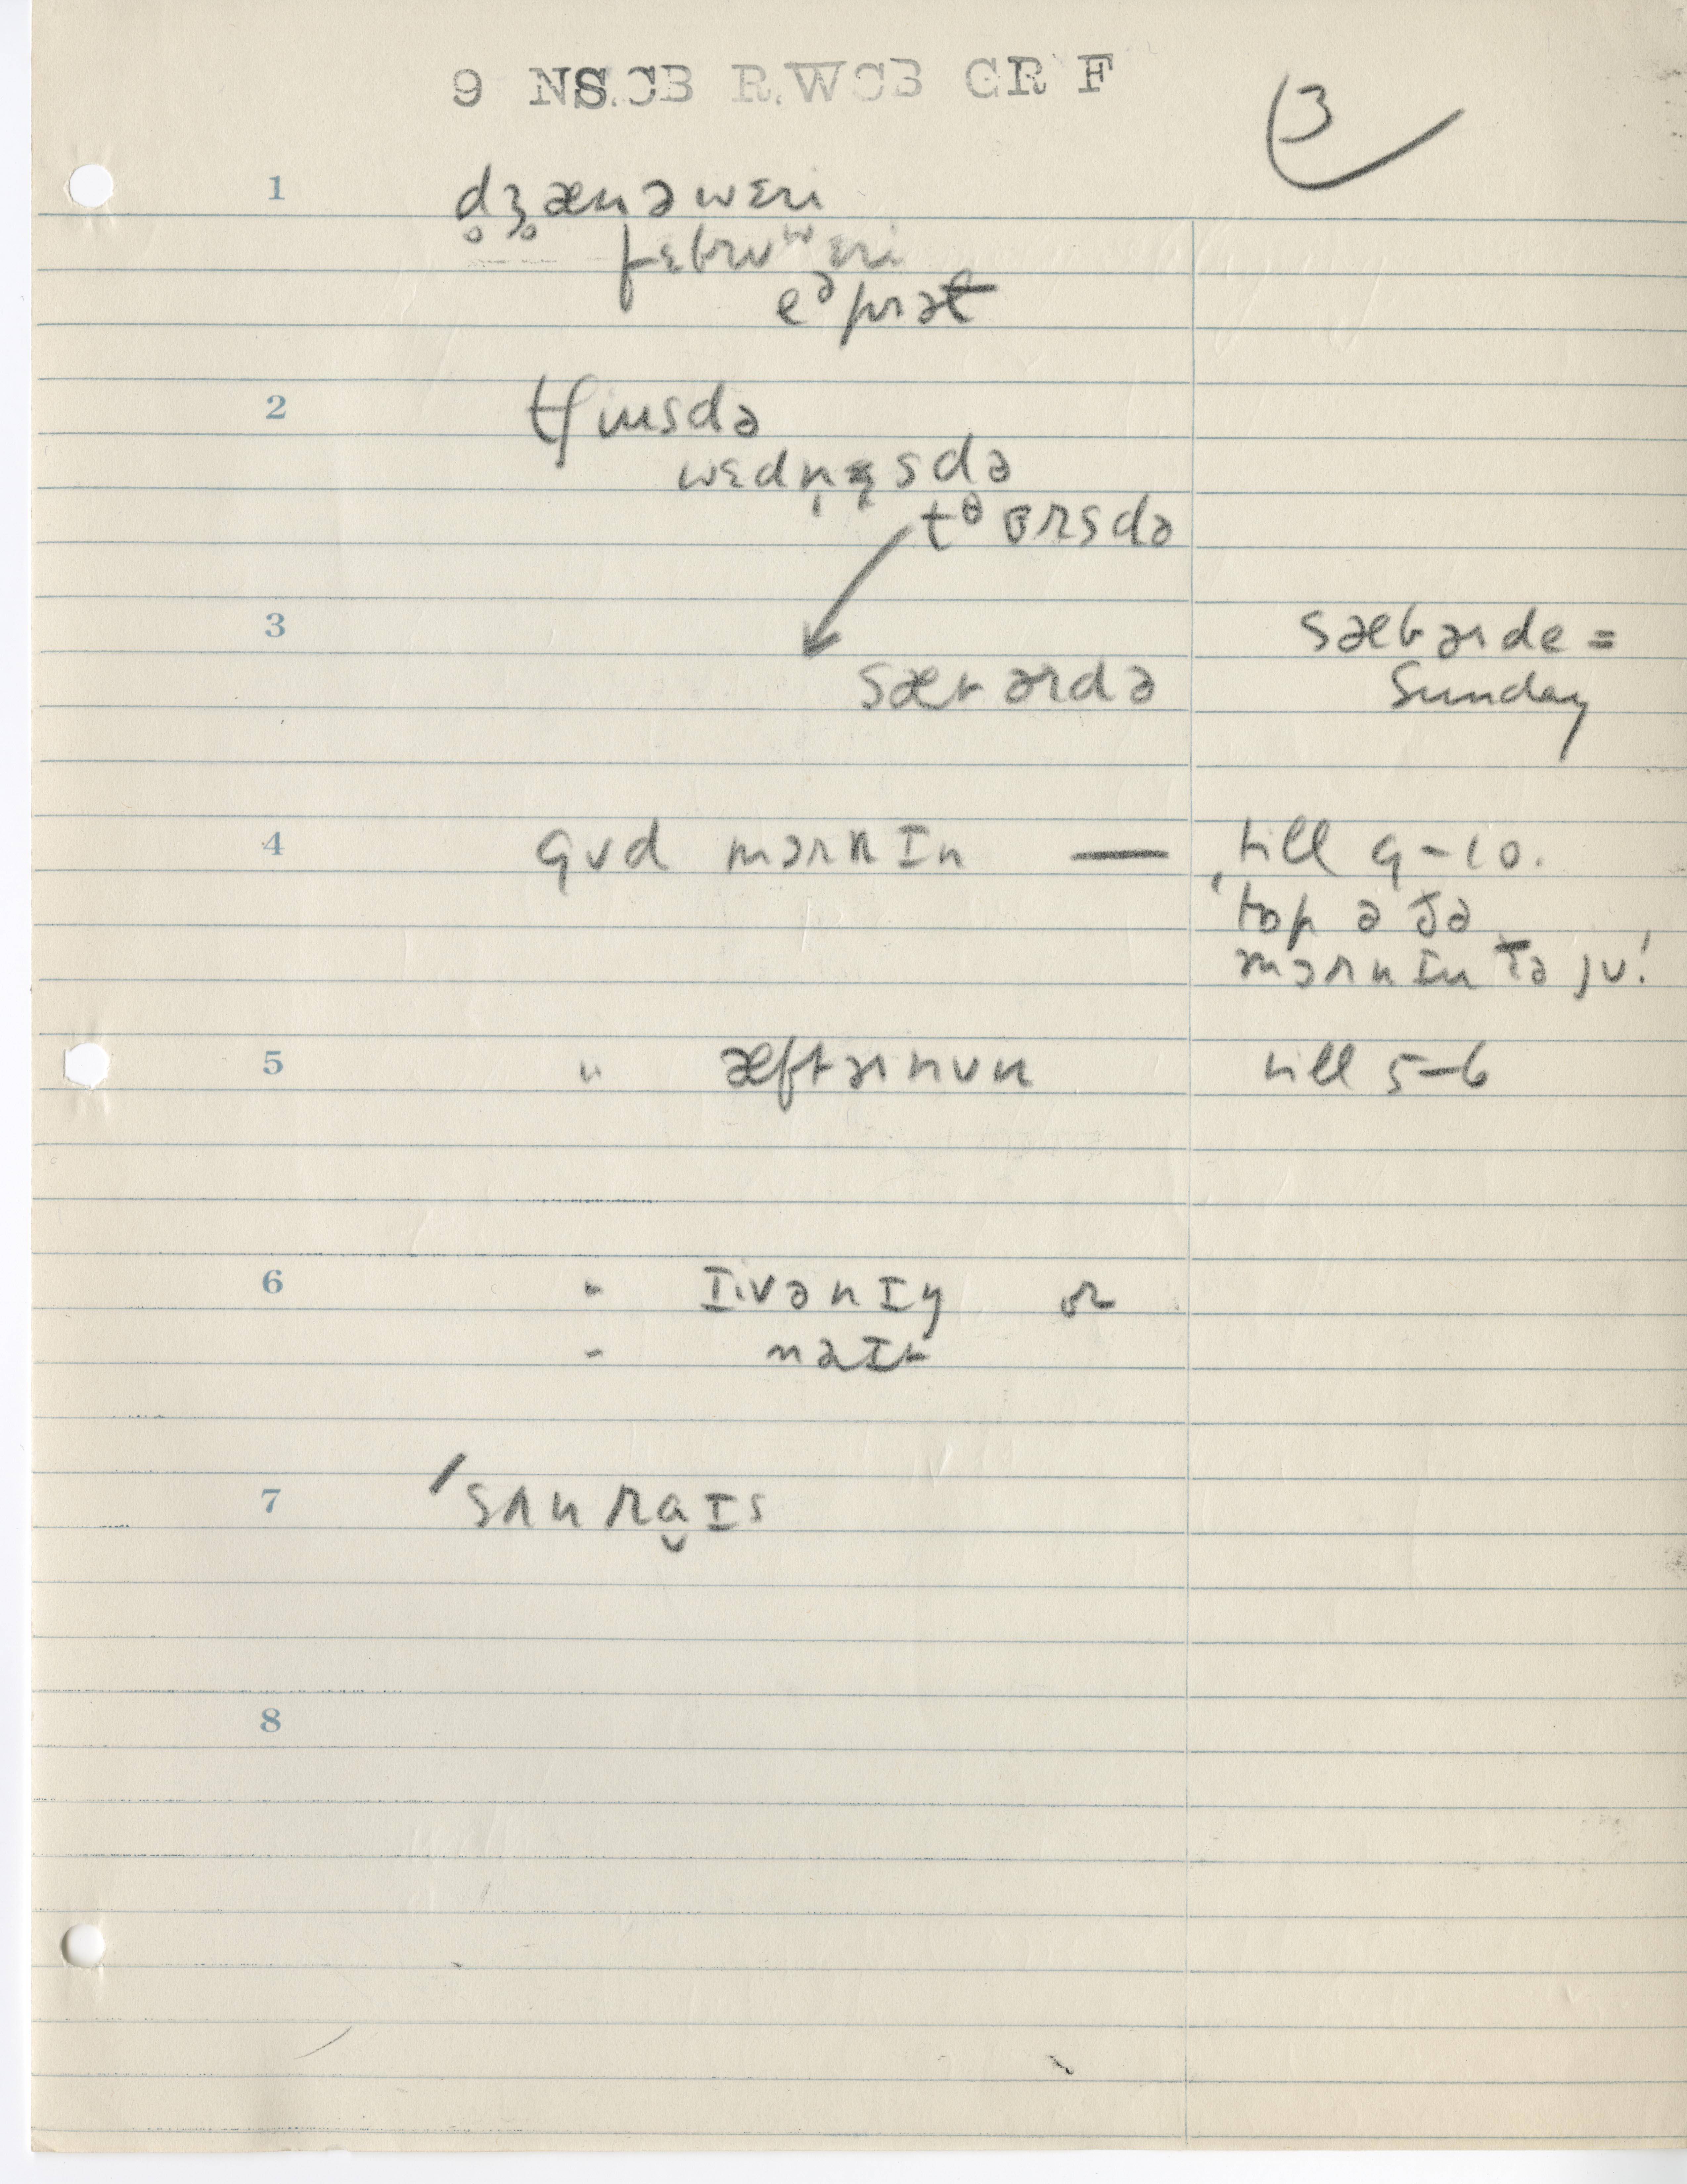 9 NS.CB R.WCB GR F
3
1 d̥ʒ̥ænəwɛri
fɛbruʷɛri
eᵊprəɫ
2 tʃiusdə
wɛdn̩ɛsdə
tᶿɞrsdə
3 sætərdə
sæbərde =
Sunday
4 gud mɔrnIn — till 9-10.
ˌtɒp ə ðə
mɔrnIn tə ju!
5 " æftərnun till 5-6
6 " I.vənIŋ or
" nəIt
7 ˈsʌnra̬Is
8